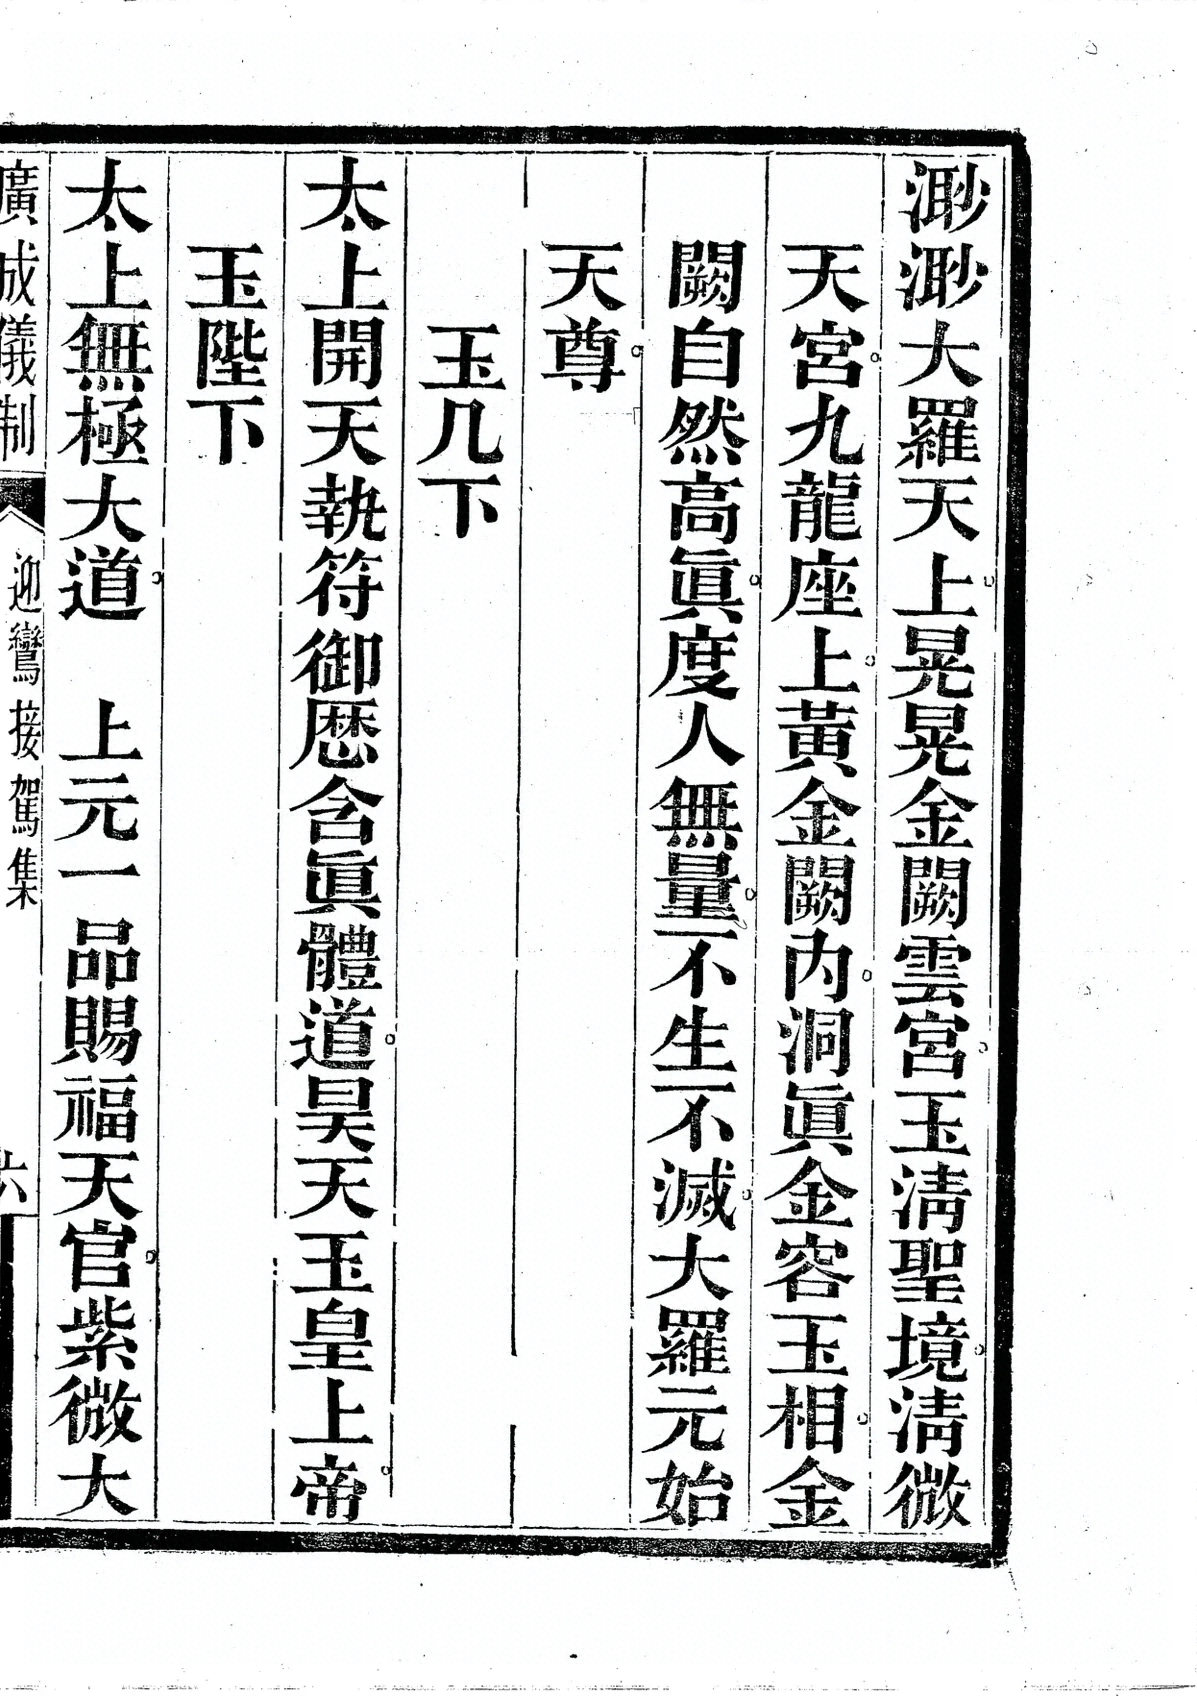 渺渺大羅天上晃晃金闕雲宮玉淸聖境淸微
天宮九龍座上黃金闕內洞眞金容玉相金
闕自然高眞度人無量不生不滅大羅元始
天尊
玉几下
太上開天執符御厯含眞體道昊天玉皇上帝
玉陛下
太上無極大道　上元一品賜福天官紫微大
廣成儀制　迎鸞接駕集　六